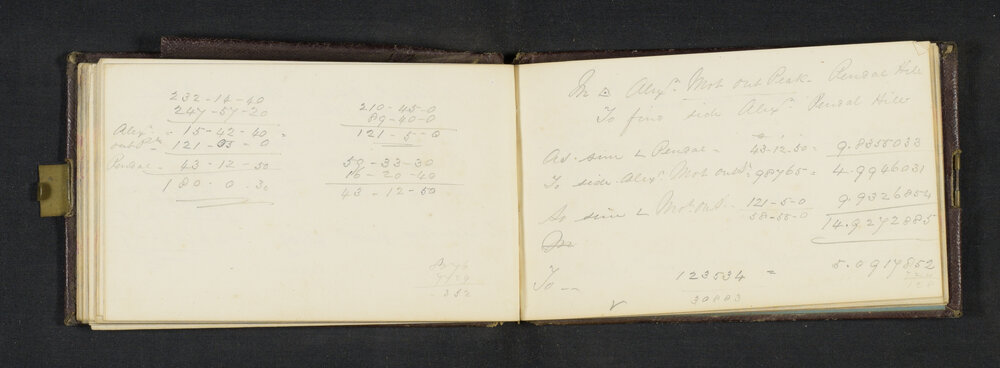 232-14-40
247-57-20
Alexr - 15-42-40 =
121-05-0
Pendal - 43-12-50
180.0.30
210-45-0
89-40-0
121-5-0
59-33-30
16-20-40
43-12-50
352
In △ Alexr. Mot out Peak Pendal Hill
To find side Alexr. Pendal Hill
As. sine ∠ Pendal = 43-12.50 = 9.8355033
To side Alexr Mot out = 98765 = 4.9946031
So sine ∠ Mot out - 121-5-0 9.9326854
58-55-0
14.9272885
To -- 123534 = 5.0917852
30883